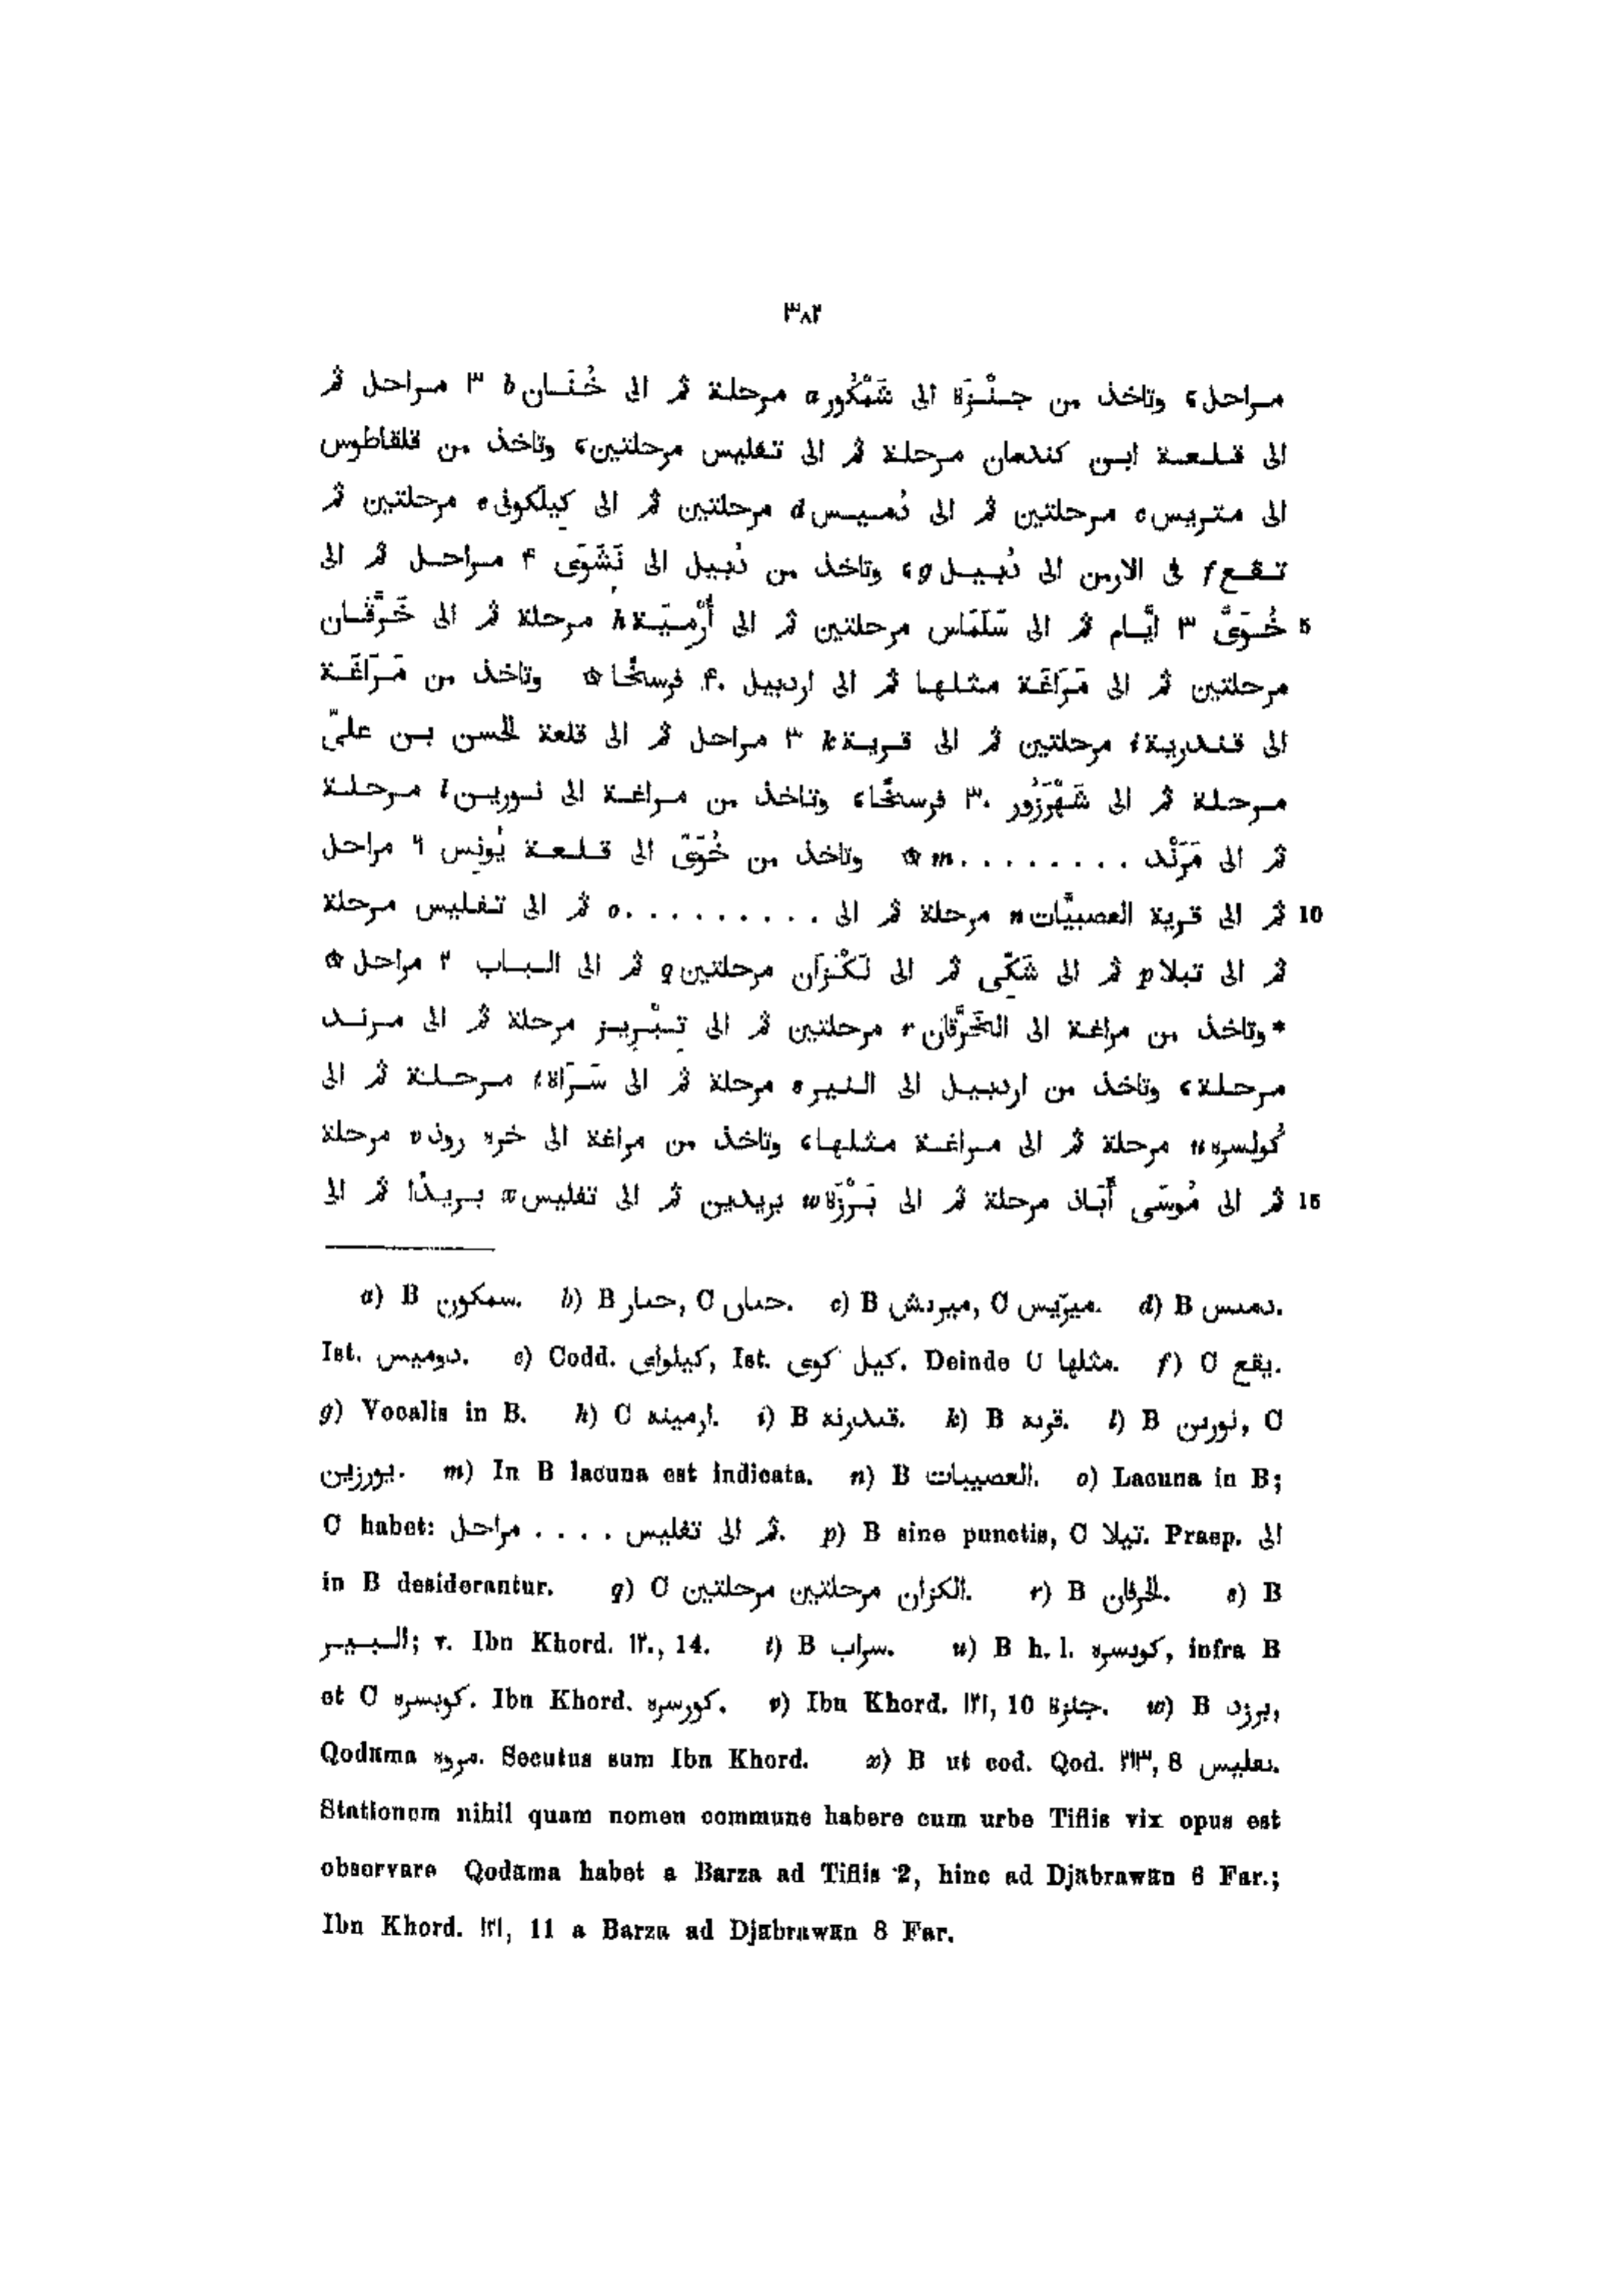 ٣٨٢
مراحل، وتاخذ من جَنْزَة الى شَمْكُور a مرحلة ثم الى خُنَان b ٣ مراحل ثم
الى قلعة ابن كندمان مرحلة ثم الى تفليس مرحلتين، وتاخذ من قلقاطوس
الى متريس c مرحلتين ثم الى دُميس d مرحلتين ثم الى كِيلَكونى e مرحلتين ثم
تقع f فى الارمن الى دُبيل g، وتاخذ من دُبيل الى نَشَوَى ۴ مراحل ثم الى
5 خُوَىّ ٣ ايّام ثم الى سَلَمَاس مرحلتين ثم الى أُرْمِيَة h مرحلة ثم الى خَرَّقَان
مرحلتين ثم الى مَرَاغَة مثلها ثم الى اردبيل ۴٠ فرسخًا ✩ وتاخذ من مَرَاغَة
الى قندرية i مرحلتين ثم الى قرية k ٣ مراحل ثم الى قلعة الحسن بن علىّ
مرحلة ثم الى شَهْرَزُور ٣٠ فرسخًا، وتاخذ من مراغة الى نورين l مرحلة
ثم الى مَرَنْد ........ m ✩ وتاخذ من خُوَىّ الى قلعة يُونِس ٦ مراحل
10 ثم الى قرية العصبيّات n مرحلة ثم الى ......... o ثم الى تفليس مرحلة
ثم الى تبلا p ثم الى شَكِّى ثم الى لَكْزَان مرحلتين q ثم الى الباب ٢ مراحل ✩
* وتاخذ من مراغة الى الخَرَّقان r مرحلتين ثم الى تِبْرِيز مرحلة ثم الى مرند
مرحلة، وتاخذ من اردبيل الى النير s مرحلة ثم الى سَرَاة t مرحلة ثم الى
كُولسره u مرحلة ثم الى مراغة مثلها، وتاخذ من مراغة الى خره روذ v مرحلة
15 ثم الى مُوسَى أَبَاذ مرحلة ثم الى بَرْزَة w بريدين ثم الى تفليس x بريدًا ثم الى
a) B سمكون. b) B حىىار, C حىىاں. c) B ميرىىش, C ميرّيس. d) B دمىىس.
Ist. دوميس. e) Codd. كيلواى, Ist. كيل كوى. Deinde C مثلها. f) C يقع.
g) Vocalis in B. h) C ارمينه. i) B قىىدرنه. k) B قرىه. l) B نورىں, C
يورزين. m) In B lacuna est indicata. n) B العصيبات. o) Lacuna in B;
C habet: ثم الى تفليس .... مراحل. p) B sine punctis, C تيلا. Praep. الى
in B desiderantur. q) C الكزان مرحلتين مرحلتين. r) B الخرقان. s) B
البير; v. Ibn Khord. ١٢٠, 14. t) B سراب. u) B h. l. كوىسره, infra B
et C كوبسره. Ibn Khord. كورسره. v) Ibn Khord. ١٢١, 10 جنزة. w) B برزد,
Qodāma مروه. Secutus sum Ibn Khord. x) B ut cod. Qod. ٢١٣, 8 ىعليس.
Stationem nihil quam nomen commune habere cum urbe Tiflis vix opus est
observare Qodāma habet a Barza ad Tiflis 2, hinc ad Djābrawān 6 Far.;
Ibn Khord. ١٢١, 11 a Barza ad Djābrawān 8 Far.